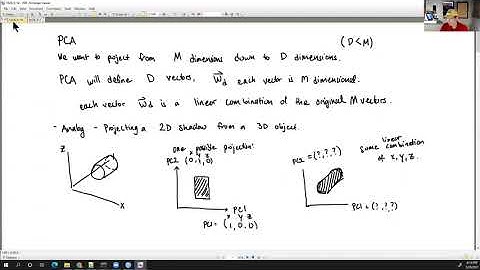 PCA (D<M)
We want to project from M dimensions down to D dimensions.
PCA will define D vectors, Wd each vector is M dimensional.
each vector Wd is a linear combination of the original M vectors.
- Analogy - Projecting a 2D shadow from a 3D object.
one possible projection:
x y z
PC2 (0,1,0)
PC1
x y z
PC1 = (1,0,0)
Z
Y
X
PC2 = (?,?,?)
PC1 = (?,?,?)
linear
some combination
of x, y, z.